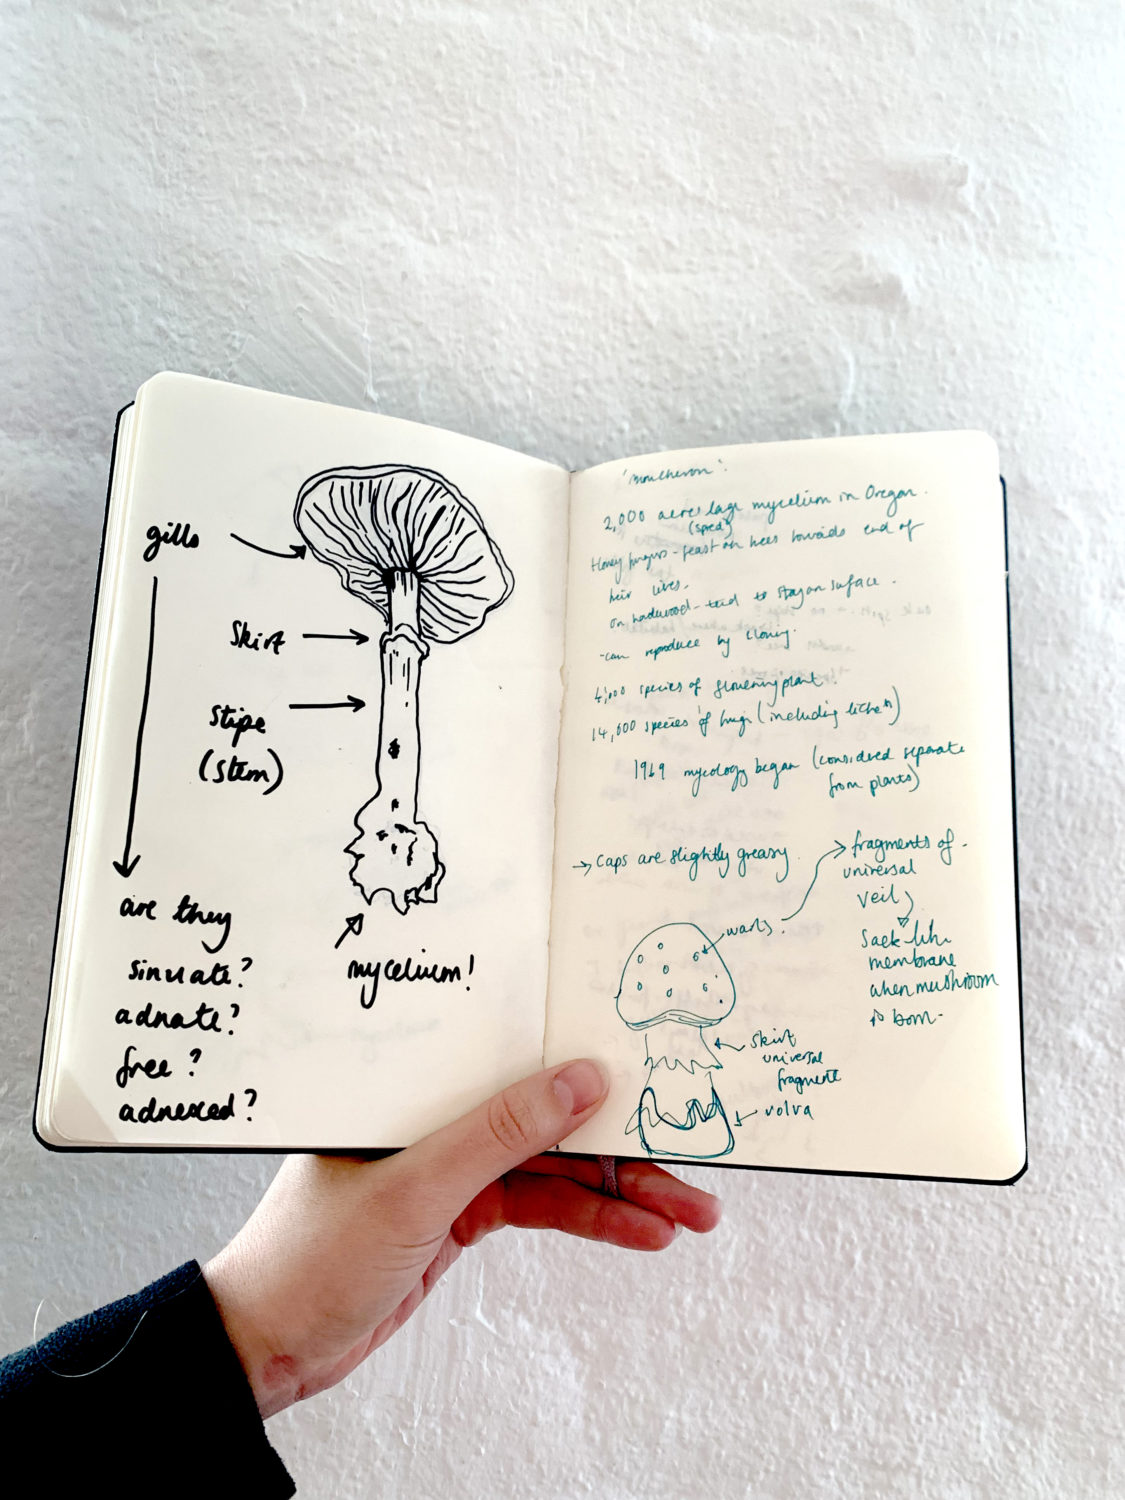 gills
skirt
stipe
(stem)
are they
sinuate?
adnate?
free?
adnexed?
mycelium!
'moucheron'.
2,000 acres large mycelium in Oregon.
Honey fungus - feast on trees towards end of
their lives.
on hardwood - tend to stay on surface.
- can reproduce by cloning.
species of flowering plant.
14,000 species of fungi (including lichen)
mycology began (considered separate
from plants)
→ caps are slightly greasy.
warts.
fragments of
universal
veil
sack-like
membrane
when mushroom
is born.
skirt
universal
fragments
volva